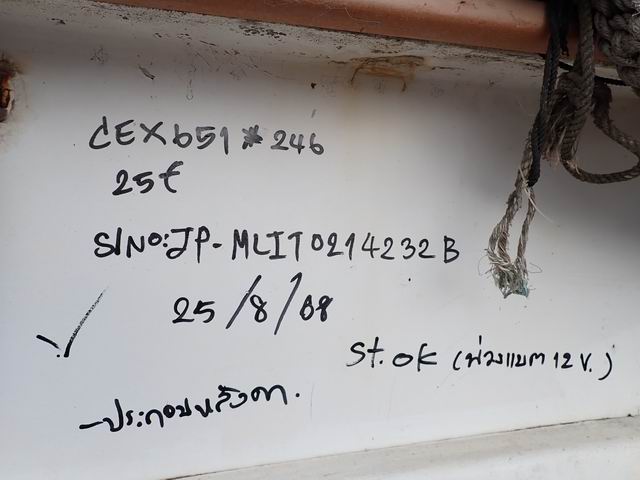 CEX651*246
25t
S/No:JP-MLIT0214232B
25/8/68
St.ok (พ่วงแบต 12 V.)
-ประกอบหลังคา.